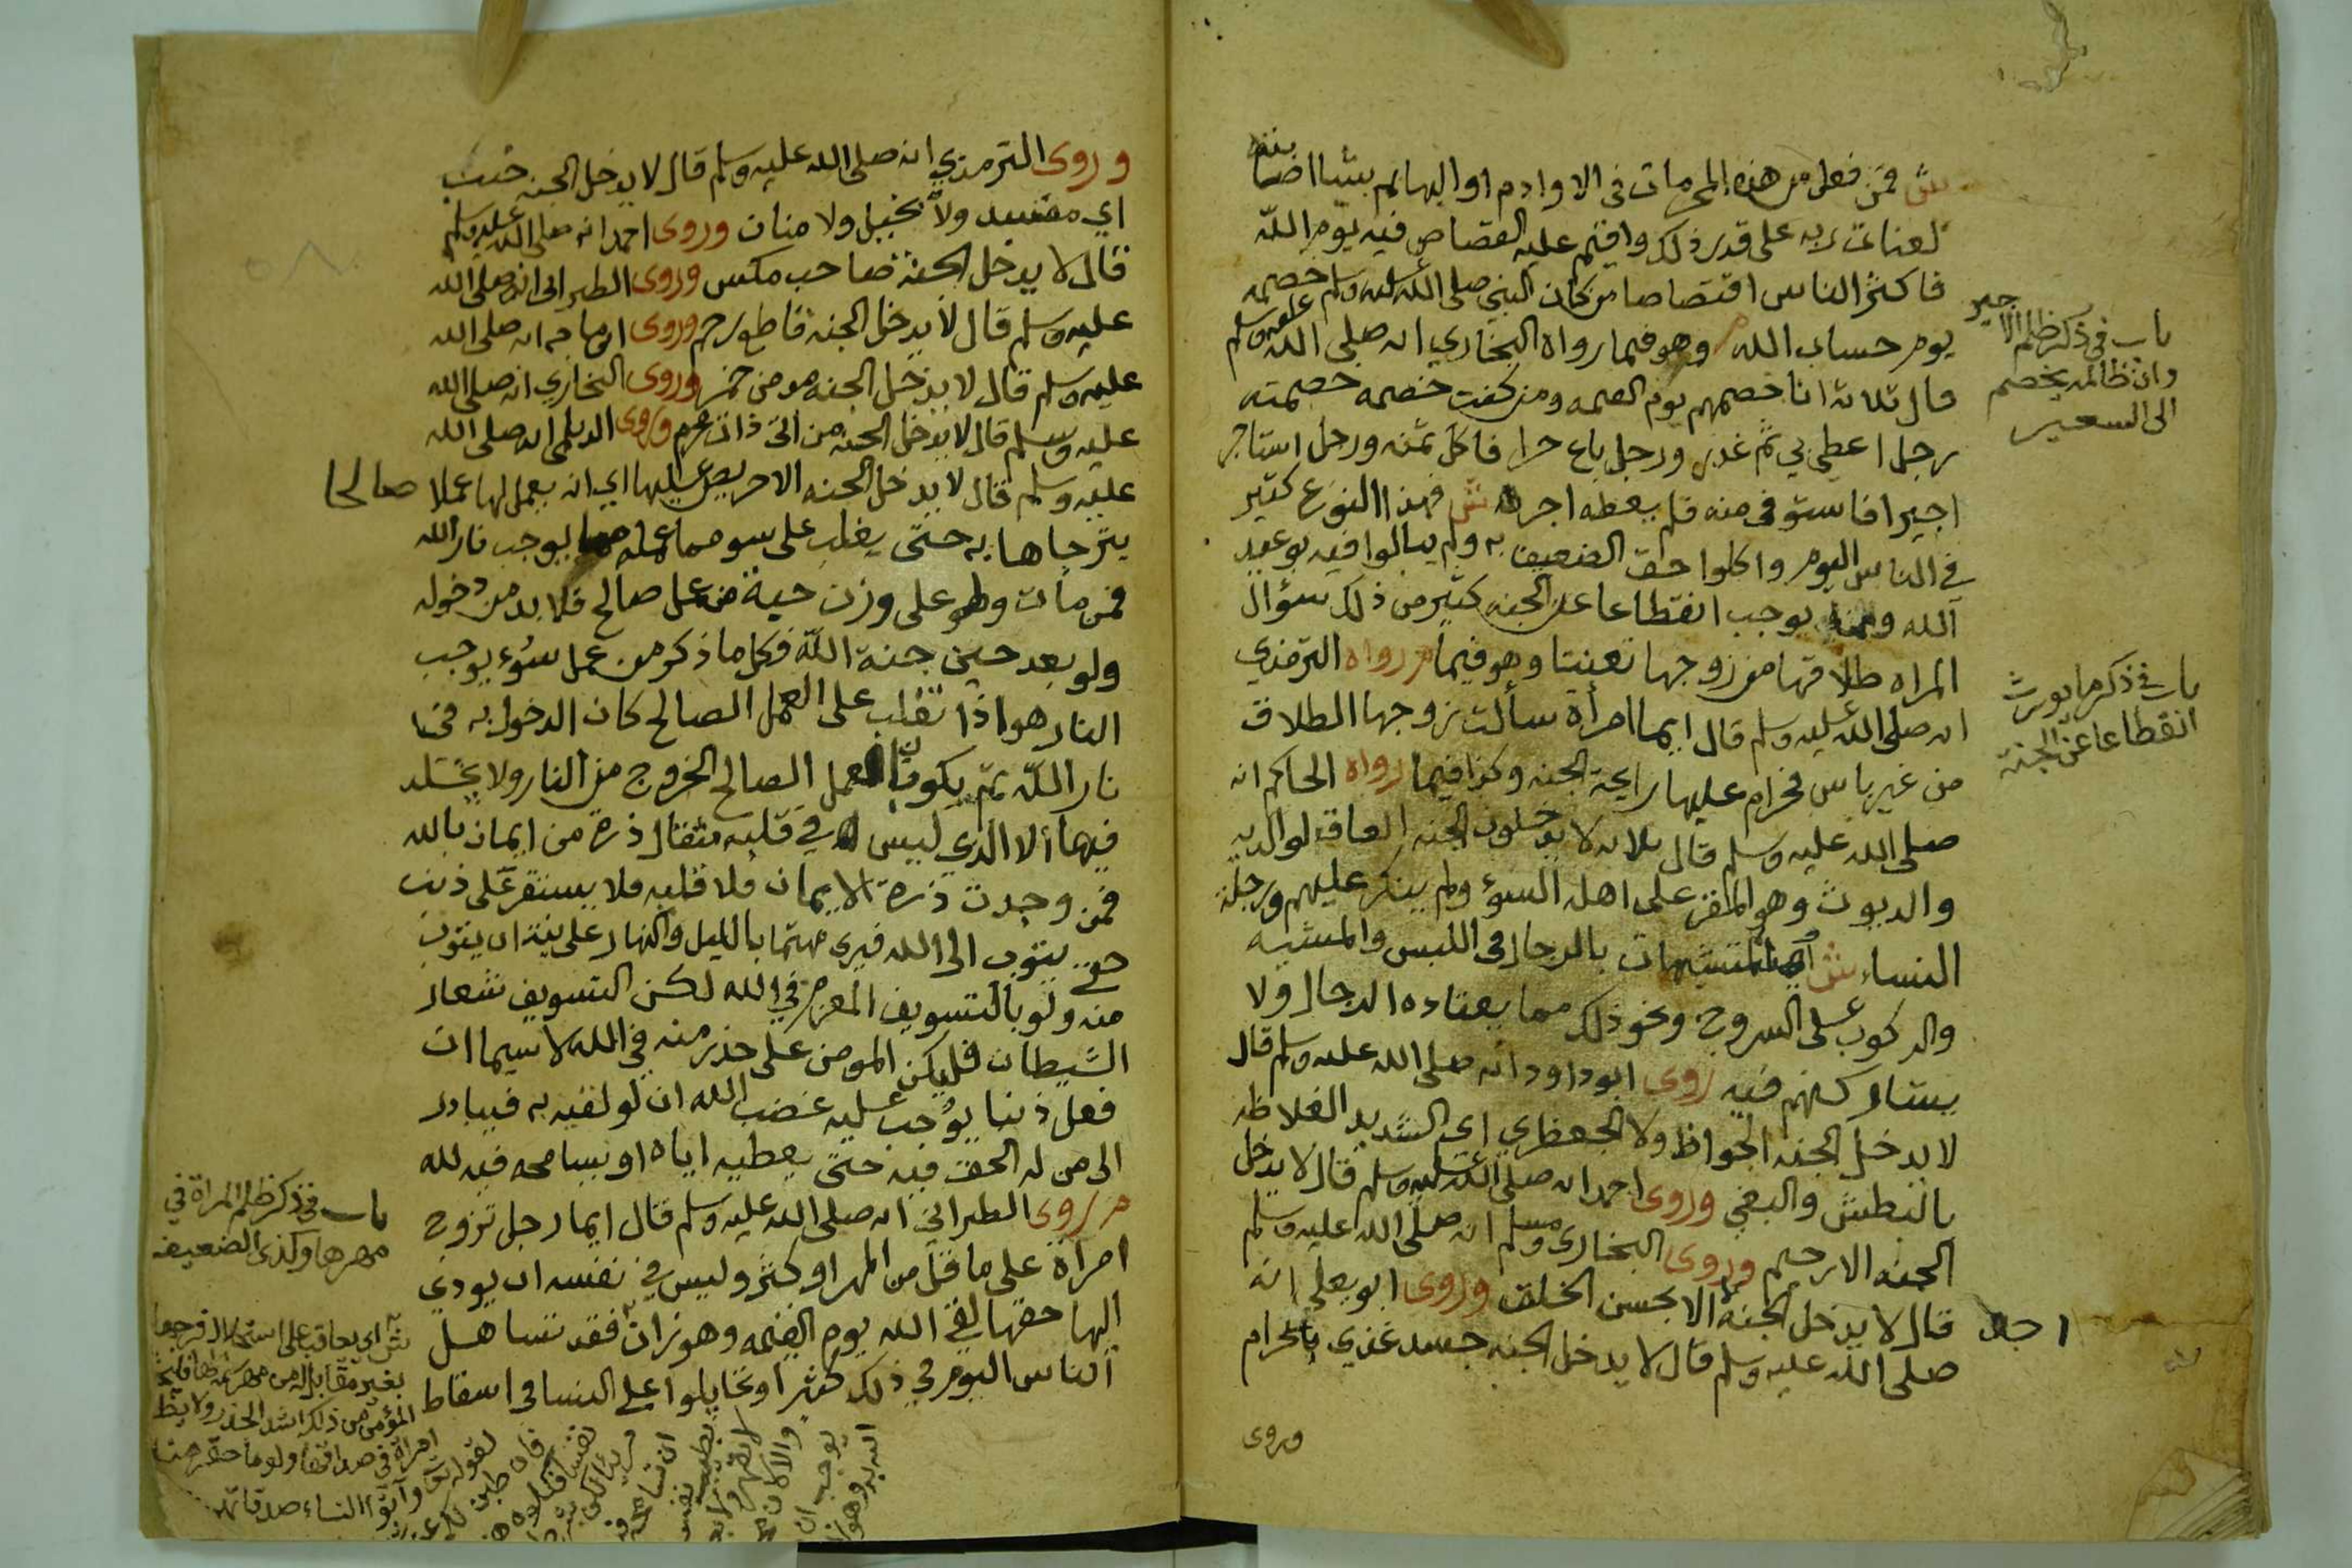 ش فمن فعل من هذه المحرمات فى الاوادم او البهائم شيئا اصابته
لعنات ربه على قدر ذلك واقيم عليه القصاص فيه يوم الله
فاكثر الناس اقتصاصا من كان النبي صلى الله عليه وسلم خصمه
يوم حساب الله م وهو فيما رواه البخاري انه صلى الله عليه وسلم
قال ثلاثة انا خصمهم يوم القيمه ومن كنت خصمه خصمته
رجل اعطى بي ثم غدر ورجل باع حرا فاكل ثمنه ورجل استاجر
اجيرا فاستوفى منه فلم يعطه اجره ش فهذا النوع كثير
في الناس اليوم واكلوا حق الضعيف به ولم يبالوا فيه بوعيد
الله يوجب انقطاعا عن الجنه كثير من ذلك سؤال
المراه طلاقها من زوجها تعنيتا وهو فيما م رواه الترمذي
انه صلى الله عليه وسلم قال ايما امرأة سألت زوجها الطلاق
من غير باس فحرام عليها رايحة الجنه وكذا فيما رواه الحاكم انه
صلى الله عليه وسلم قال ثلاثه لا يدخلون الجنه العاق لوالديه
والديوث وهو المقر على اهله السوء ولم ينكر عليهم ورجلة
النساء ش المتشبهات بالرجال فى اللبس والمشيه
والركوب على السروج ونحو ذلك مما يعتاده الرجال ولا
يشاركنهم فيه روى ابو داود انه صلى الله عليه وسلم قال
لا يدخل الجنه الجواظ ولا الجعظري اي الشديد الغلاظه
بالبطش والبغي وروى احمد انه صلى الله عليه وسلم قال لا يدخل
الجنه الا رحيم وروى البخارى ومسلم انه صلى الله عليه وسلم
قال لا يدخل الجنة الا بحسن الخلق وروى ابو يعلى انه
صلى الله عليه وسلم قال لا يدخل الجنه جسد غذي بالحرام
وروى
باب فى ذكر ظلم الاجير
وان ظالمه يخصم
الى السعير
باب فى ذكر ما يورث
انقطاعا عن الجنة
وروى الترمذي انه صلى الله عليه وسلم قال لا يدخل الجنه خب
اي مفسد ولا بخيل ولا منان وروى احمد انه صلى الله عليه وسلم
قال لا يدخل الجنة صاحب مكس وروى الطبرانى انه صلى الله
عليه وسلم قال لا يدخل الجنة قاطع رحم وروى ابن ماجه انه صلى الله
عليه وسلم قال لا يدخل الجنه مدمن خمر وروى البخاري انه صلى الله
عليه وسلم قال لا يدخل الجنه من اتى ذات محرم وروى الديلمى انه صلى الله
عليه وسلم قال لا يدخل الجنه الا حريص عليها اي ان يعمل لها عملا صالحا
يترجاها به حتى يغلب على سوء مما عمله يوجب نار الله
فمن مات وهو على وزن حبة من عمل صالح فلا بد من دخوله
ولو بعد حين جنة الله فكل ما ذكر من عمل سوء يوجب
النار هو اذا تغلب على العمل الصالح كان الدخول به فى
نار الله ثم يكون العمل الصالح الخروج من النار ولا يخلد
فيها الا الذي ليس له في قلبه مثقال ذرة من ايمان بالله
فمن وجدت ذرة الايمان فى قلبه فلا يستقر على ذنب
حتى يتوب الى الله فيرى مهتما بالليل والنهار على نية ان يتوب
منه ولو بالتسويف العزم في الله لكن التسويف شعار
الشيطان فليكن المومن على حذر منه في الله لا سيما ان
فعل ذنبا يوجب عليه غضب الله ان لو لقيه به فيبادر
الى من له الحق فيه حتى يعطيه اياه او يسامحه فيه لله
م روى الطبراني انه صلى الله عليه وسلم قال ايما رجل تزوج
امرأة على ما قل من المهر او كثر وليس في نفسه ان يودي
اليها حقها لقي الله يوم القيمه وهو زان فقد تساهل
الناس اليوم في ذلك كثيرا وتحايلوا على النسا فى اسقاط
باب فى ذكر ظلم المراة في
مهرها وكذى الضعيف
ش اي يعاقب على استحلال فرجها
بغير مقابلة من مهر
المؤمن من ذلك اشد الحذر ولا
امرأة فى صداقها ولو ما
لقوله تعالى وآتوا النساء صدقاتهن
فان طبن لكم عن